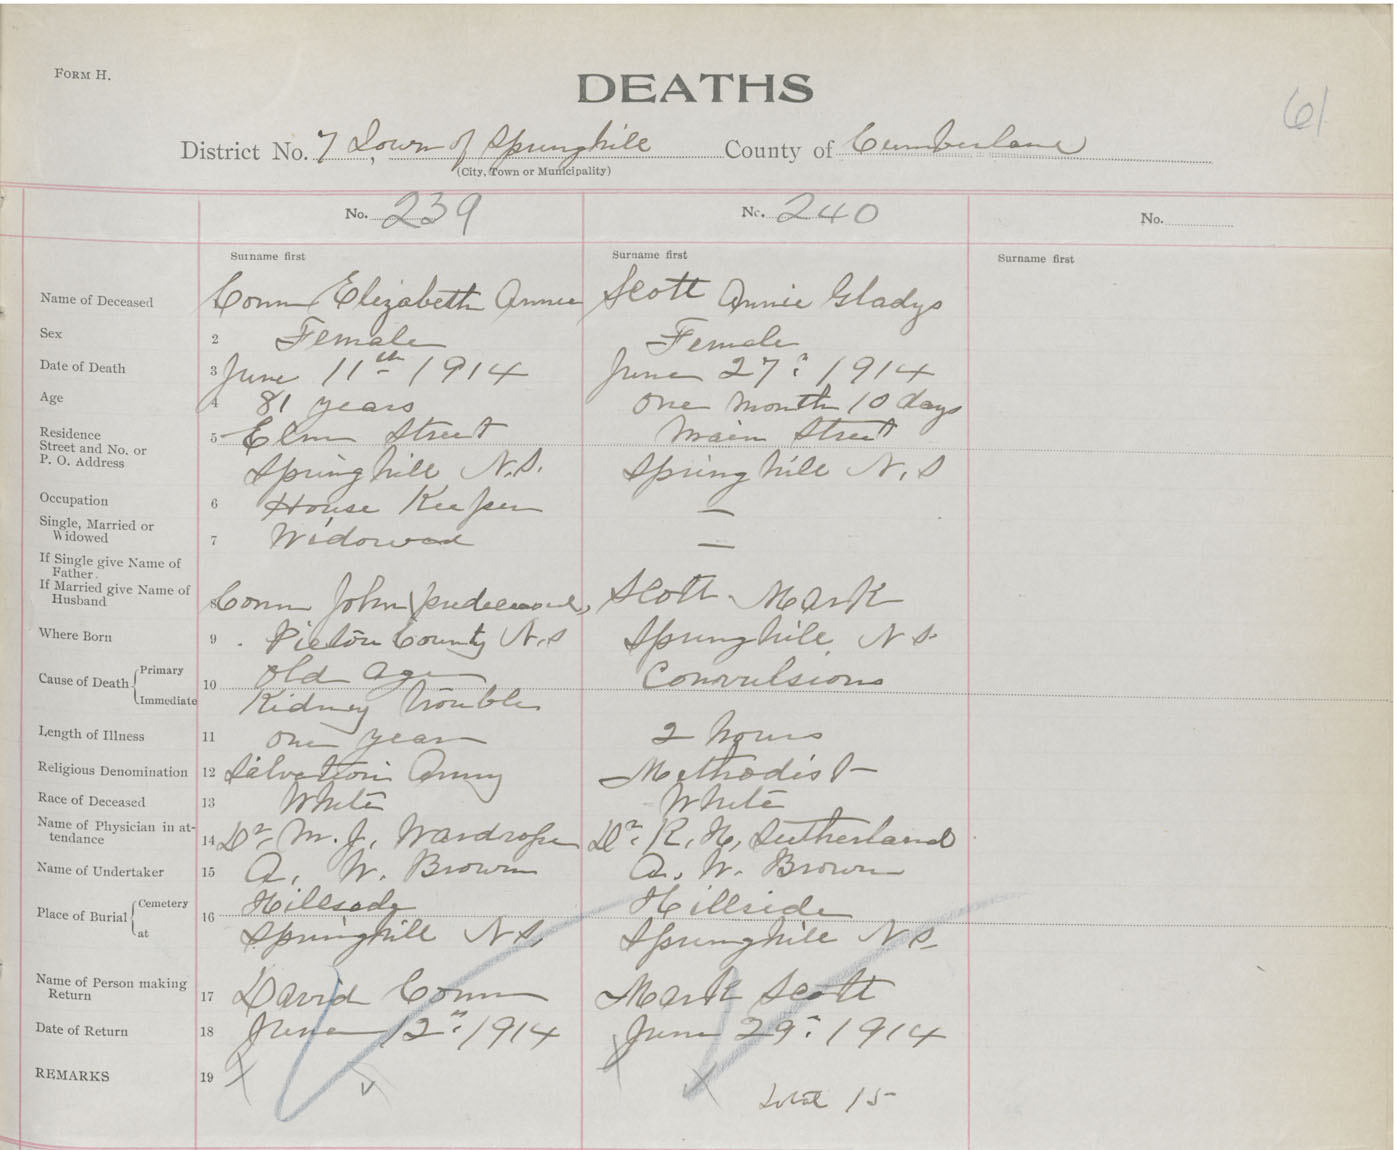 FORM H.
DEATHS
61
District No. 7 Town of Springhill County of Cumberland
(City, Town or Municipality)
No. 239
No. 240
No.
Surname first
Surname first
Surname first
Name of Deceased
Conn Elizabeth Annie
Scott Annie Gladys
Sex
2 Female
Female
Date of Death
3 June 11th 1914
June 27" 1914
Age
4 81 years
one month 10 days
Residence
Street and No. or
P. O. Address
5 Elm Street
Springhill N.S.
Main Street
Springhill N.S
Occupation
6 House Keeper
—
Single, Married or
Widowed
7 Widowed
—
If Single give Name of
Father.
If Married give Name of
Husband
8 Conn John predeceased,
Scott Mark
Where Born
9 Pictou County N.S
Springhill N S.
Cause of Death { Primary
Immediate
10 Old Age
Kidney Trouble
Convulsions
Length of Illness
11 one year
2 hours
Religious Denomination
12 Salvation Army
Methodist
Race of Deceased
13 White
White
Name of Physician in at-
tendance
14 Dr. M. J. Wardrope
Dr. R. H. Sutherland
Name of Undertaker
15 A. W. Brown
A. W. Brown
Place of Burial { Cemetery
at
16 Hillside
Springhill N S.
Hillside
Springhill N S.
Name of Person making
Return
17 David Conn
Mark Scott
Date of Return
18 June 12" 1914
June 29" 1914
REMARKS
19 X
X
total 15